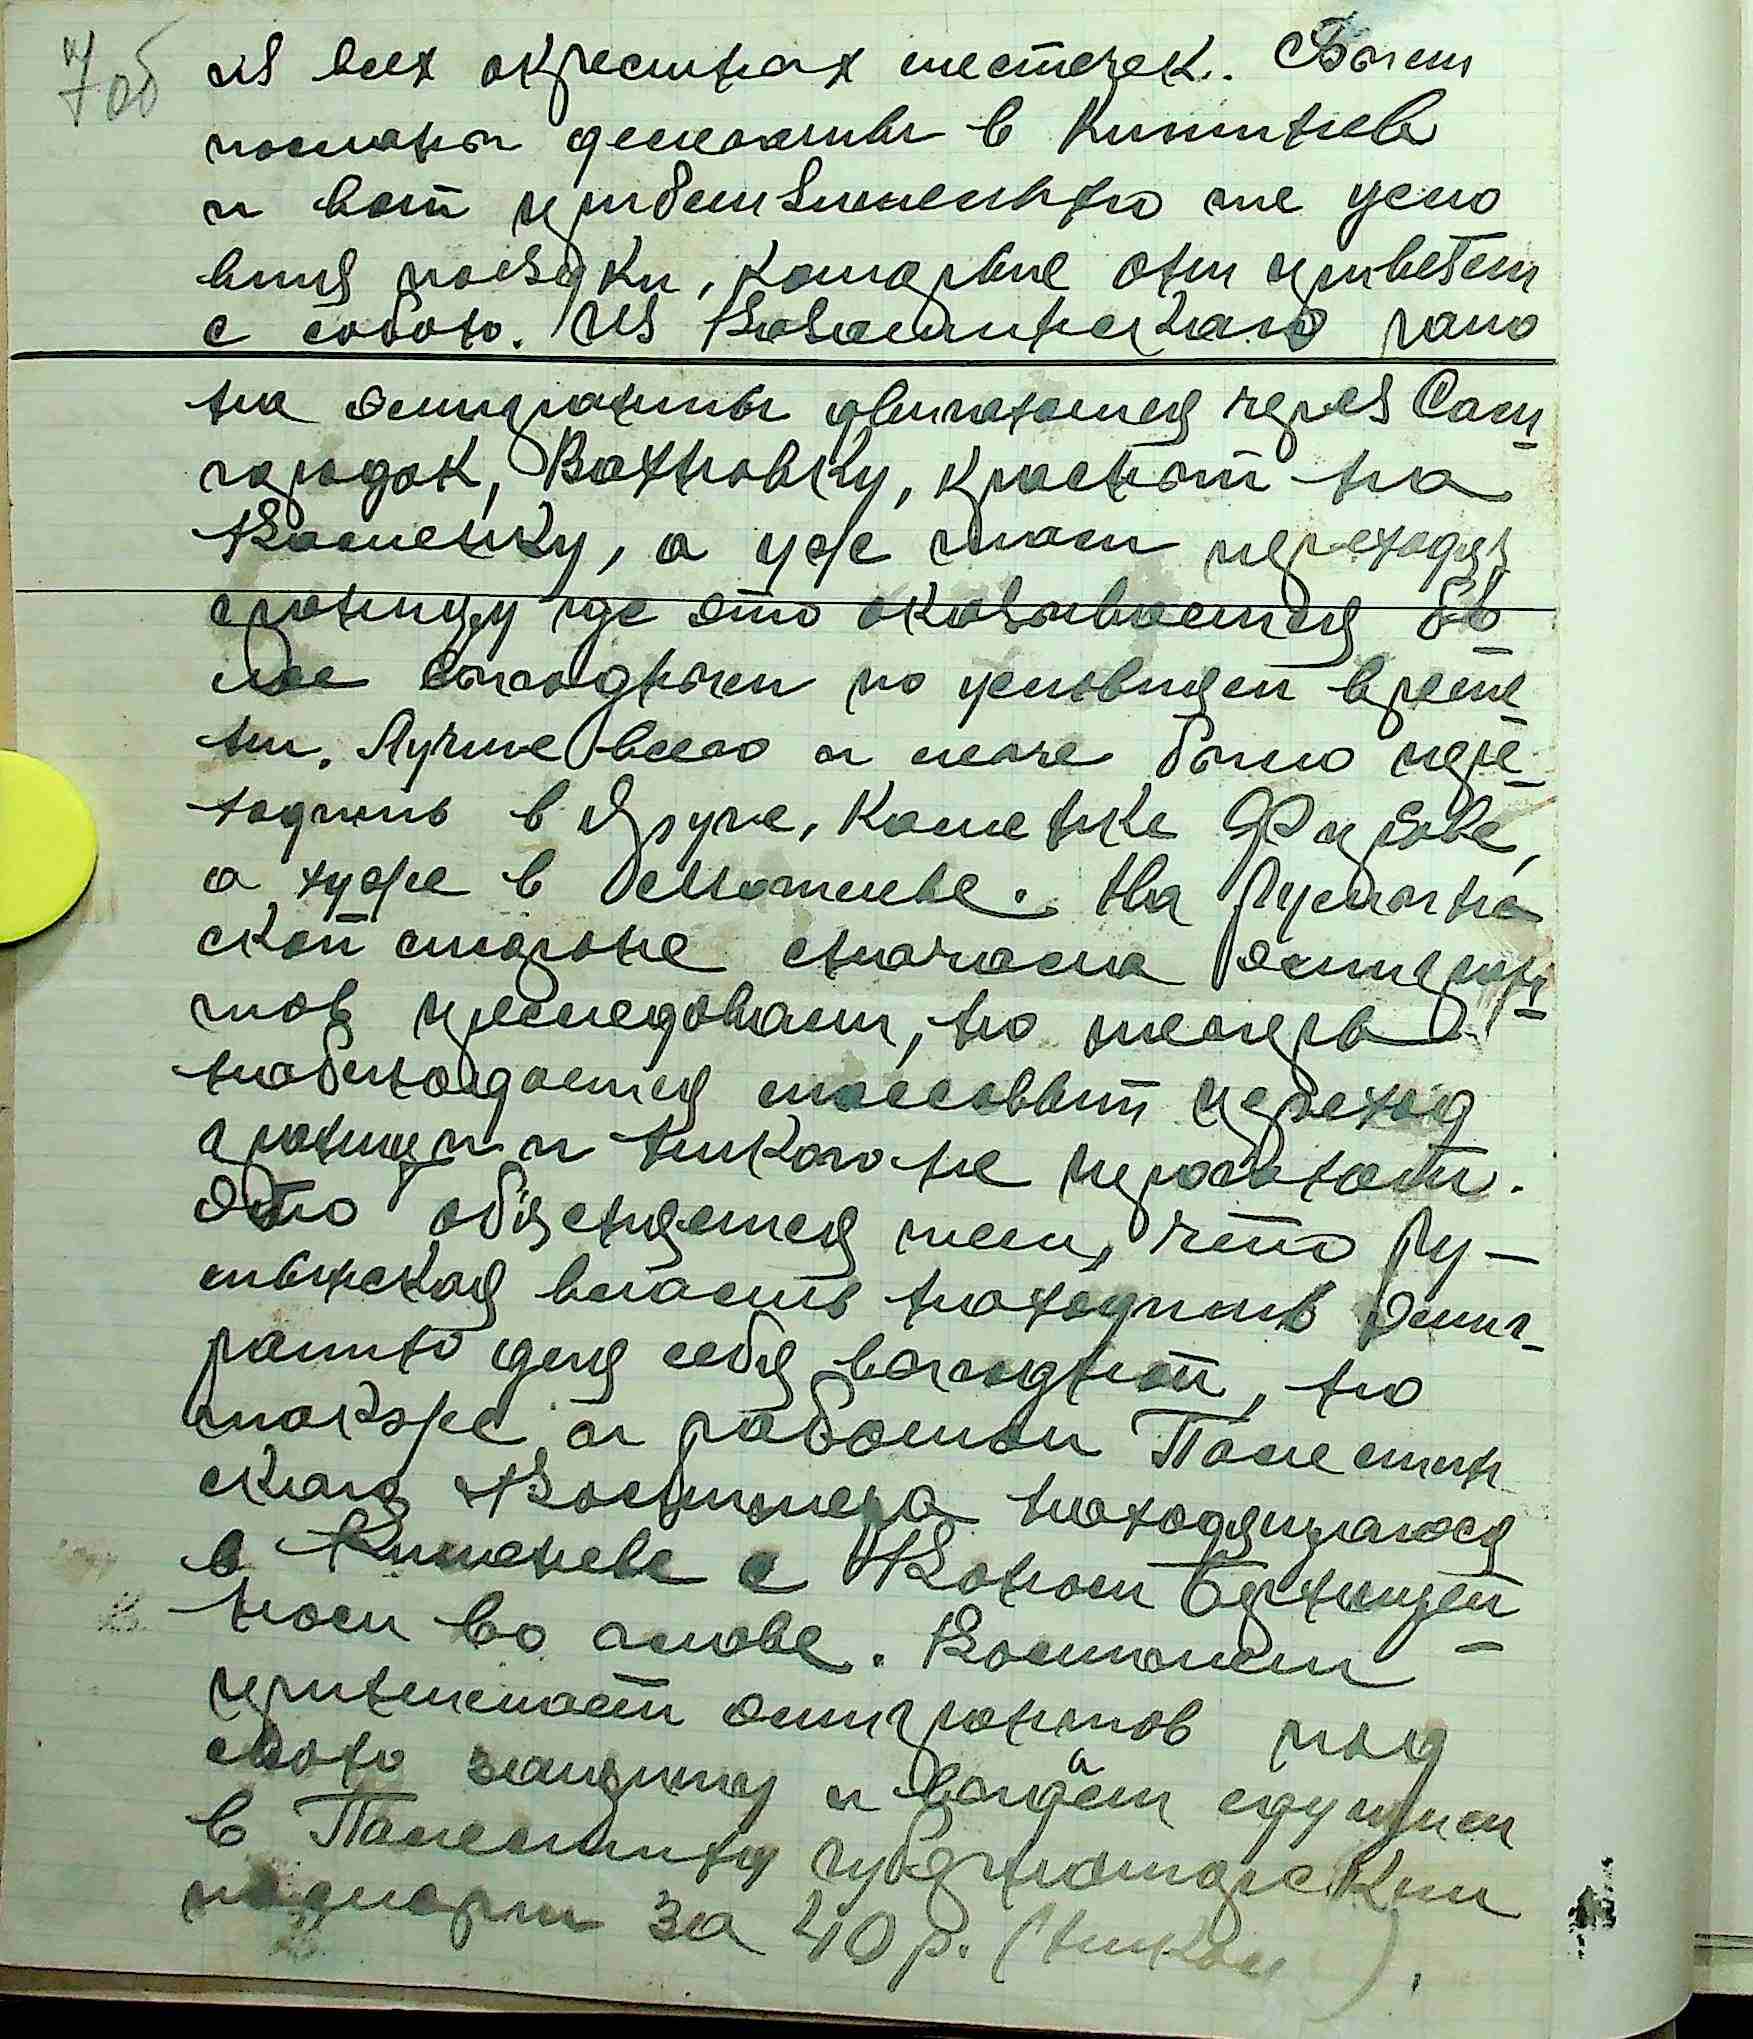 7 об
из всех окрестных местечек. Были
посланы делегаты в Кишинев
и вот приблизительно те усло
вия поездки, которые они привезли
с собою. Из Казатинского райо
на эмигранты двигаются через Сам
городок, Вахновку, на
Каменку, а уже там переходят
границу где это оказывается бо
лее выгодным по условиям време
ни. Лучше всего и легче было пере
ходить в Яруге, Каменке
а хуже в Могилеве. На Румын
ской стороне сначала эмигран
тов преследовали, но теперь
наблюдается массовый переход
границы и никого не трогают.
Это объясняется тем, что Ру-
мынская власть находит эмиг
рацию для себя выгодной, но
также и работой Палестин
ского Комитета находящагося
в Кишиневе с
ной во главе. Комитет
принимает эмигрантов под
свою защиту и выдает едущим
в Палестину губернаторские
паспорта за 40 р. (Николаев).